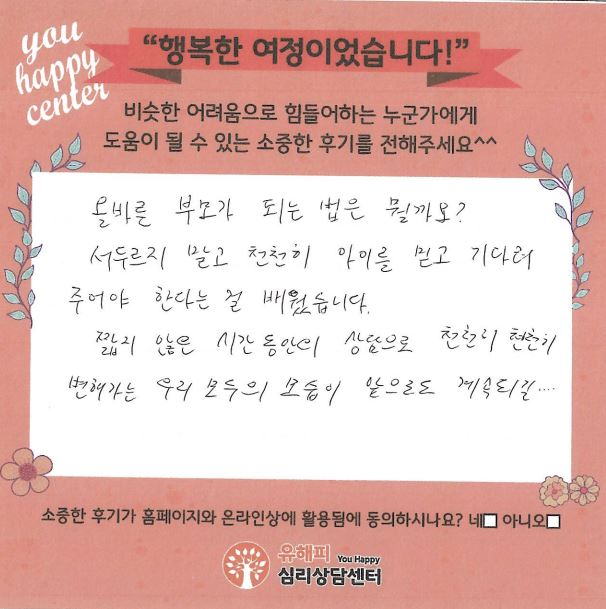 you
happy
center
“행복한 여정이었습니다!”
비슷한 어려움으로 힘들어하는 누군가에게
도움이 될 수 있는 소중한 후기를 전해주세요^^
올바른 부모가 되는 법은 뭘까요?
서두르지 말고 천천히 아이를 믿고 기다려
주어야 한다는 걸 배웠습니다.
짧지 않은 시간동안의 상담으로 천천히 천천히
변해가는 우리 모두의 모습이 앞으로도 계속되길....
소중한 후기가 홈페이지와 온라인상에 활용됨에 동의하시나요? 네□ 아니오□
유해피 You Happy
심리상담센터